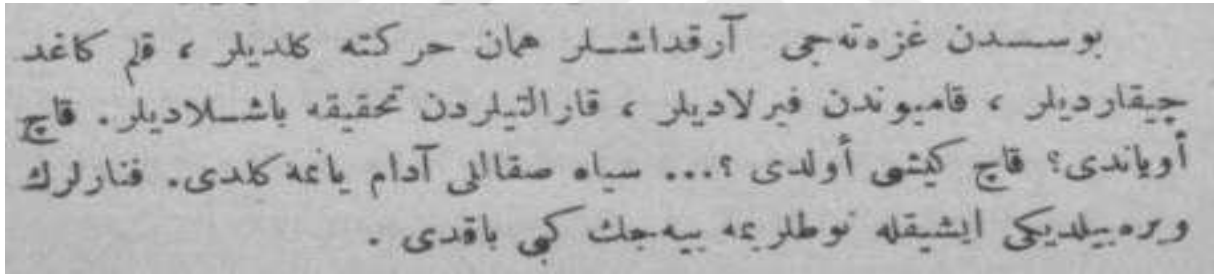 بوسسدن غزه‌ته‌جی آرقداشلر همان حرکته کلدیلر ، قلم کاغد
چیقاردیلر ، قامیوندن فیرلادیلر ، قارالتیلردن تحقیقه باشلادیلر. قاچ
أویاندی؟ قاچ کیشی أولدی ؟... سیاه صقاللی آدام یانمه کلدی. فنارلرك
ویره‌بیلدیکی ایشیقله نوطلریمه ییه‌جك کبی باقدی .